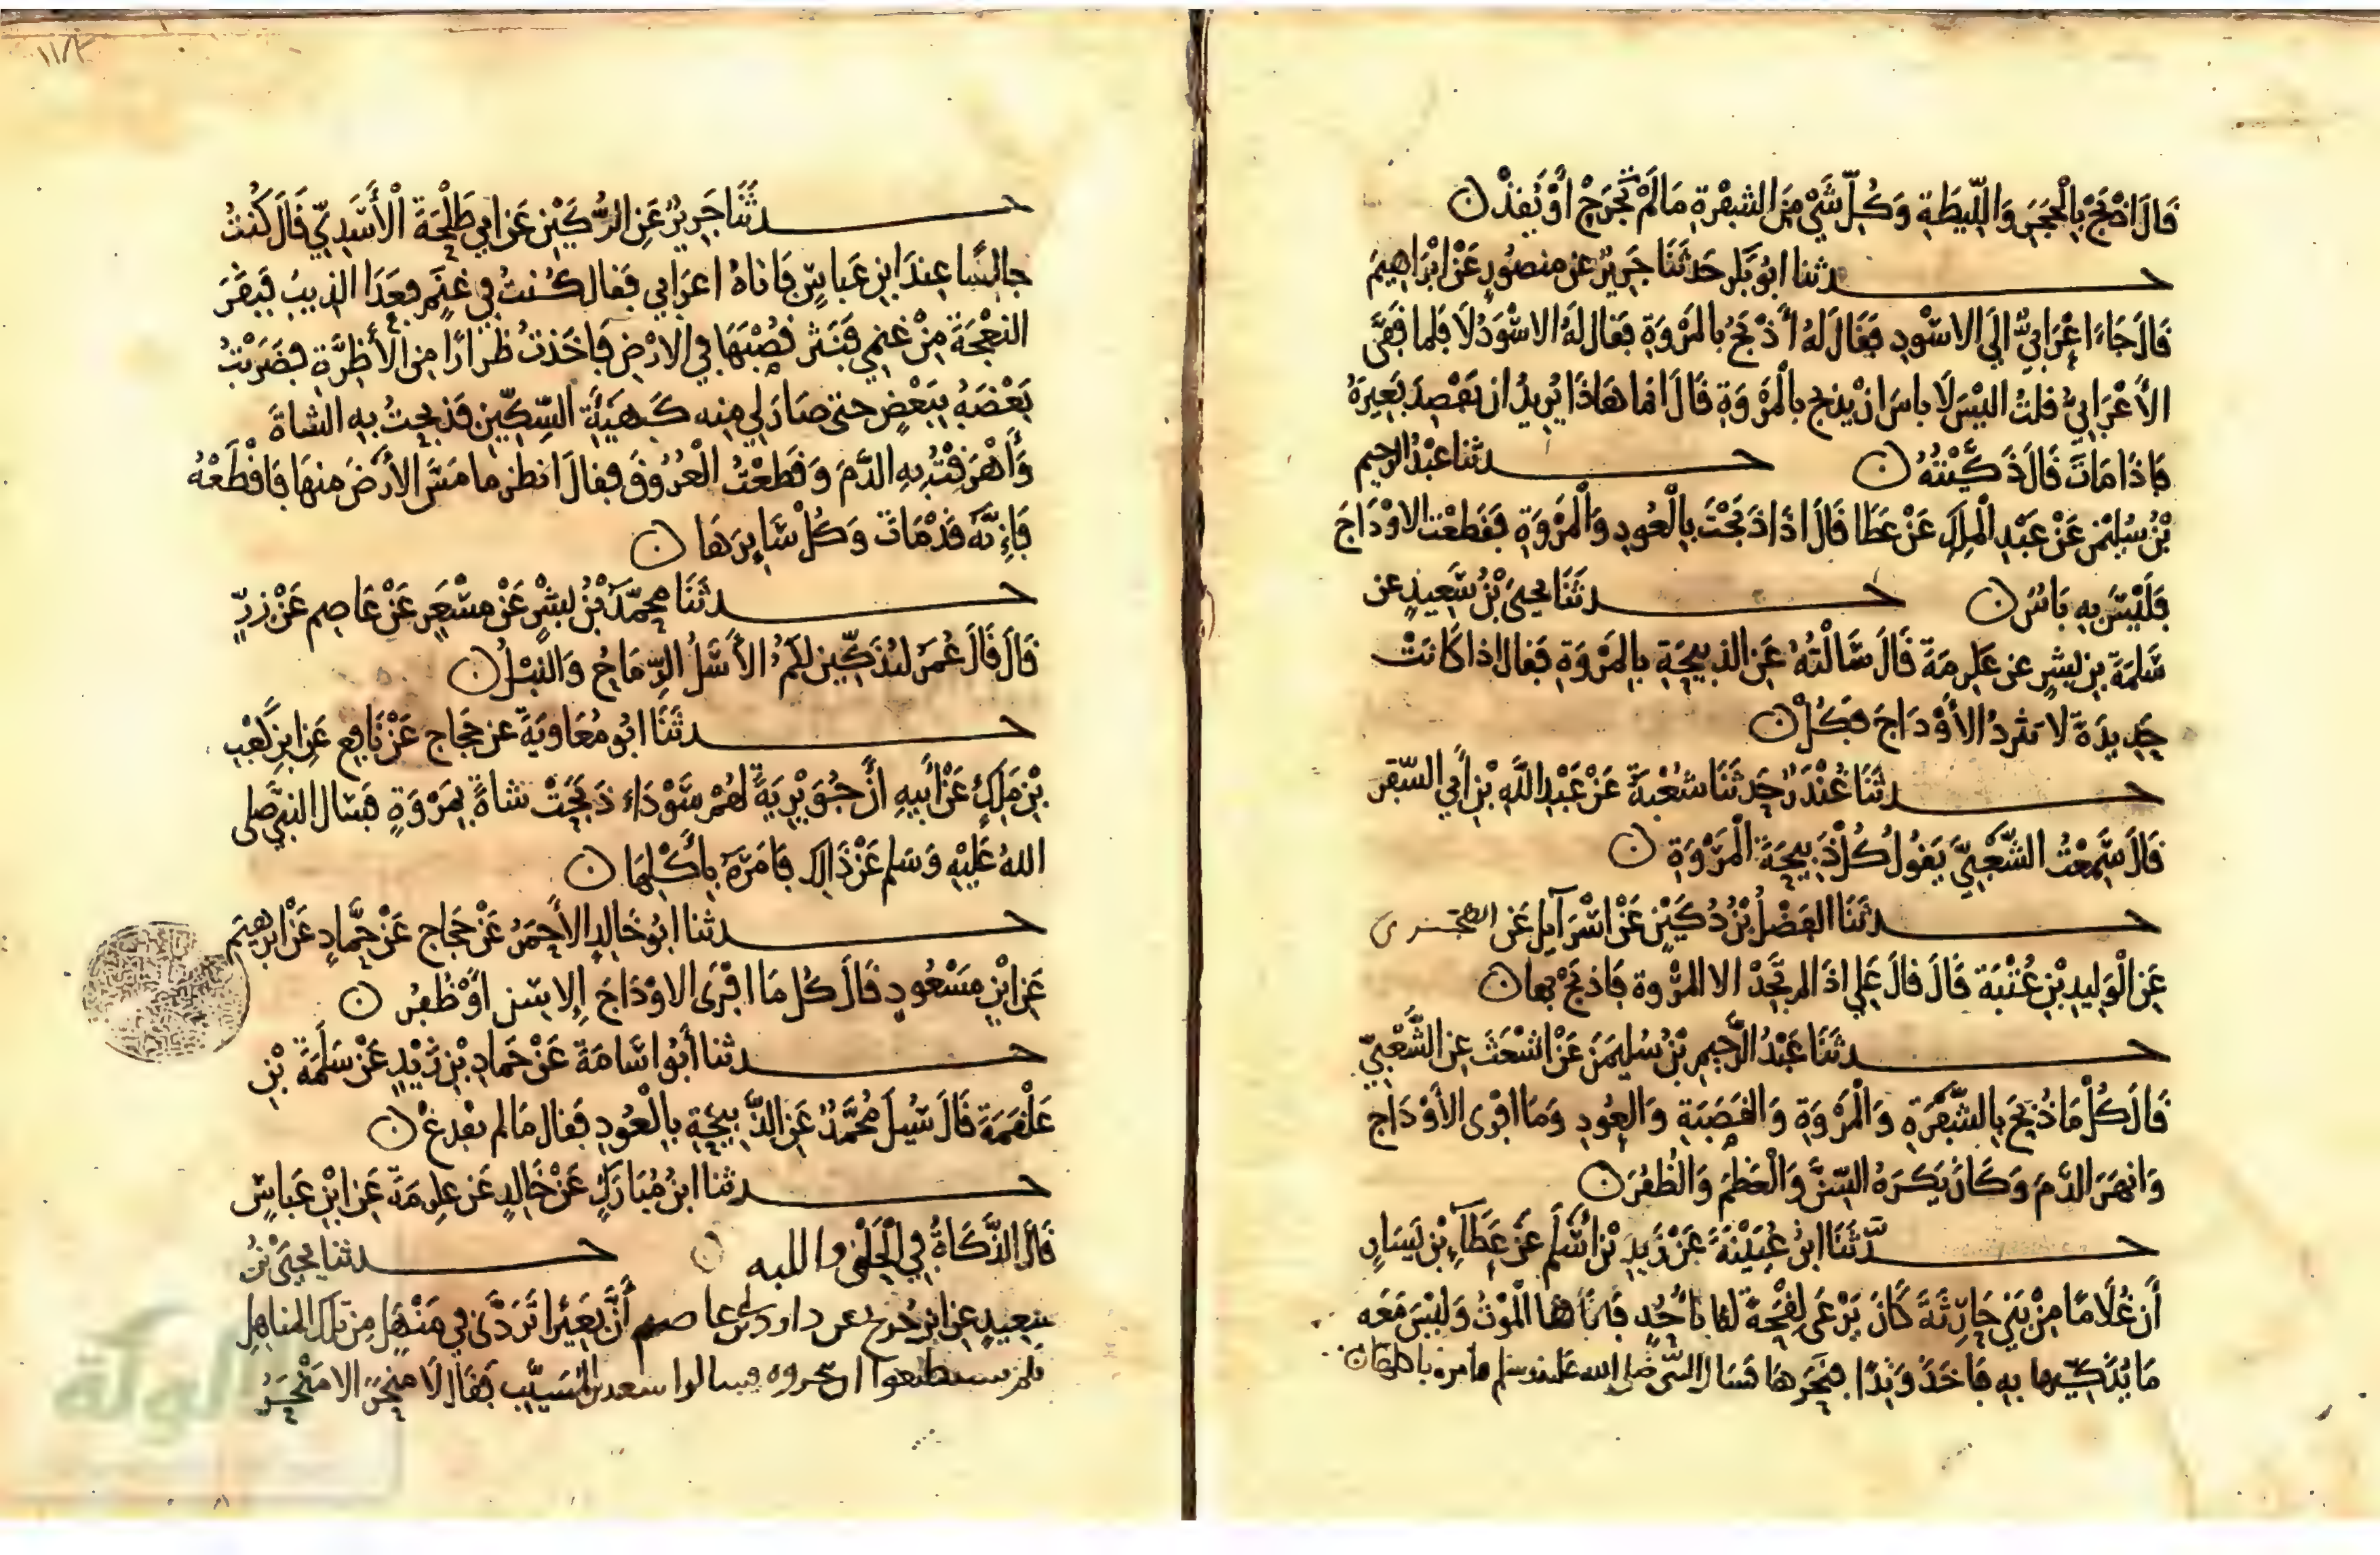 قَالَ اذْبَحْ بِالْحَجَرِ وَاللِّيطَةِ وَكُلِّ شَيْءٍ مِنَ الشفْرَةِ مَا لَمْ تَجْرَحْ أَوْ
حدثنا ابُو بَكر حَدثَنَا جَرِيرٌ عن منصُورٍ عَنْ ابْرَاهِيمَ
قَالَ جَاءَ اعْرَابِيٌّ الَى الاسْوَدِ فَقَالَ لَهُ أَذْبَحُ بالمَرْوَةِ فَقال لَهُ الاسْوَدُ لَا فَلما قَفَّى
الأَعْرَابِيُّ قلتُ اليْسَ لَا باسَ انْ يذبح بالْمَرْوَةِ قَالَ انما هَاذَا يُرِيدُ ان يَقْصِدَ بَعِيرَهُ
فَاذَا مَاتَ قَالَ ذَكَّيْتُهُ ۞ حدثنا عَبْدُ الرحيم
بْنُ سُلَيْمن عَنْ عَبْدِ الْمَلِكِ عَنْ عَطَا قَالَ اذَا ذَبَحْتَ بِالْعُودِ وَالْمَرْوَةِ فَقَطَعْتَ الاوْدَاجَ
فَلَيْسَ بِهِ بَاسٌ ۞ حدثَنَا يحيَى بْنُ سَعِيدٍ عن
سَلَمَةَ بنِ بشرٍ عن عكرمَةَ قَالَ سَالْتُهُ عَنِ الذبِيحَةِ بِالمَرْوَةِ فَقال اذا كَانَتْ
حَدِيدَةً لَا تثردُ الأَوْدَاجَ فَكُلْ ۞
حدثَنَا غُنْدَرٌ حَدثَنَا شُعْبَةُ عَنْ عَبْدِ اللَّهِ بْنِ أَبِي السّفَر
قَالَ سَمِعْتُ الشَّعْبِيَّ يَقُولُ كُلْ ذَبِيحَةَ الْمَرْوَةِ ۞
حدثَنَا الفَضْلُ بْنُ دُكَيْنٍ عَنْ اسْرَآيِلَ عَن
عَنِ الْوَلِيدِ بْنِ عُتْبَةَ قَالَ قالَ عَلِي اذَا لم تَجِدْ الا المَرْوة فَاذبَحْ بها ۞
حدثَنَا عَبْدُ الرَّحِيمِ بْنُ سُلَيمَنَ عَنْ اشْعَثَ عنِ الشَّعْبِيِّ
قَالَ كُلْ مَا ذُبِحَ بِالشَّفْرَةِ وَالْمَرْوَةِ وَالقَصَبَةِ وَالعُودِ وَمَا افْرَى الأَوْدَاجَ
وَانهَرَ الدَّمَ وَكَانَ يَكرَهُ السِّنَّ وَالْعَظْمَ وَالظُّفُرَ ۞
حدّثَنَا ابنُ عُيَيْنَةَ عَنْ زَيدِ بْنِ أَسْلَمَ عَنْ عَطَآءِ بْنِ يَسَارٍ
أَن غُلَامًا مِنْ بَنِي حَارِثَةَ كَانَ يَرْعَى لِقْحَةً لَهُ بِأُحُدٍ فَاتَاهَا الْمَوْتُ وَلَيْسَ مَعَه
مَا يُذَكِّيهَا بِهِ فَاخَذَ وَتَدًا فنَحَرهَا فَسَال النبي صلى الله عليه وسلم فامره باكلها ۞
حدثَنَا جَرِيرٌ عَنِ الرُّكَيْنِ عَن ابي طَلْحَةَ الْأَسَدِيِّ قَالَ كُنْتُ
جالِسًا عِندَ ابنِ عَبَاسٍ فَاتاهُ اعرَابي فَقال كُنتُ فِي غنَمٍ فعَدَا الذيبُ فَبَقَرَ
النعْجَةَ مِنْ غنمِي فَنَثر قُصْبَهَا فِي الارْضِ فَاخَذتُ ظُرارًا مِنَ الأَظِرَّةِ فضَرَبْتُ
بَعْضَهُ بِبَعْضٍ حتى صَارَ لِي مِنه كَهَيْئَةِ السِّكِّينِ فَذبحتُ بِهِ الشاةَ
وَأَهْرَقْتُ بِهِ الدَّمَ وَقَطَعْتُ الْعُرُوقَ فقالَ انظر ما مَسَّ الأَرْضَ مِنهَا فَاقْطَعْهُ
فَإِنَّهُ قَدْ مَاتَ وَكُلْ سَايِرَهَا ۞
حدثَنَا مُحَمَّدُ بْنُ بِشْرٍ عَنْ مِسْعَرٍ عَنْ عَاصِم عَنْ زِرٍّ
قَالَ قَالَ عُمَرُ لتُذَكِّين لكمُ الأَسَلُ الرِّمَاحُ وَالنبْلُ ۞
حدثَنَا ابُو مُعَاوِيَةَ عن حَجَاج عَنْ نَافِعٍ عَنِ ابنِ كَعْبِ
بْنِ مَلِكٍ عَنْ أَبيهِ أَنَّ جُوَيْرِيَةً لَهُمْ سَوْدَاءَ ذَبَحَتْ شَاةً بِمَرْوَةٍ فَسَال النبيَّ صلى
اللهُ عَلَيْهِ وَسَلم عَنْ ذَالِكَ فَامَرَهُ بِأَكْلِهَا ۞
حدثنا ابُو خَالِدٍ الأَحمَرُ عَنْ حَجَاج عَنْ حَمَّادٍ عَنْ ابرهِيمَ
عَنِ ابْنِ مَسْعُودٍ قَالَ كُل مَا افْرَى الاوْدَاجَ إِلا سن اوْ ظُفُر ۞
حدثنا أَبُو اسَامَةَ عَنْ حَمادِ بْنِ زَيْدٍ عَنْ سَلَمَةَ بْنِ
عَلْقَمَةَ قَالَ سُيلَ مُحَمَّدٌ عَنِ الذَّبِيحَةِ بِالْعُودِ فَقال مَا لم يفدغْ ۞
حدثنا ابنُ مُبَارَكٍ عَنْ خَالِدٍ عَن عِكرمَةَ عَنِ ابْنِ عَبَاسٍ
قَالَ الذَّكَاةُ فِي الْحَلْقِ واللبه ۞ حدثنا يحيَى بْنُ
سَعِيدٍ عَنِ ابنِ جُرَيج عن داود بن أبي عاصم أَنَّ بَعِيرًا تَرَدَّى فِي مَنْهَلٍ مِن تلكَ المناهِلِ
فلم يستطيعوا ان ينحروه فسالوا سعيد بن المسَيَّبِ فَقَال لَا مَنْحَرَ الا مَنْحَرُ